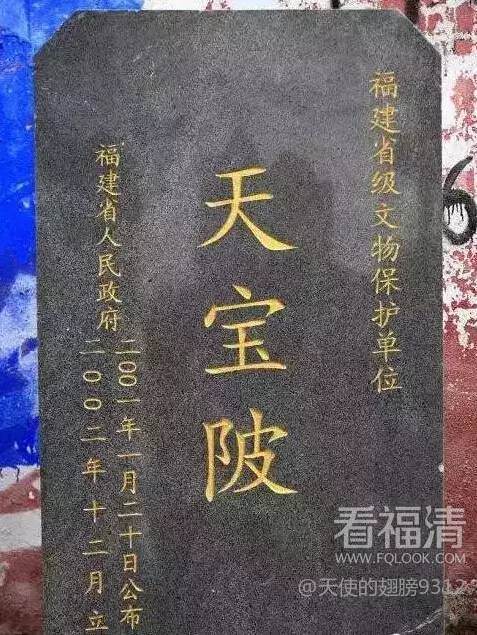 福建省级文物保护单位
天宝陂
福建省人民政府
二00一年一月二十日公布
二00二年十二月立
看福清
WWW.FQLOOK.COM
@天使的翅膀9312